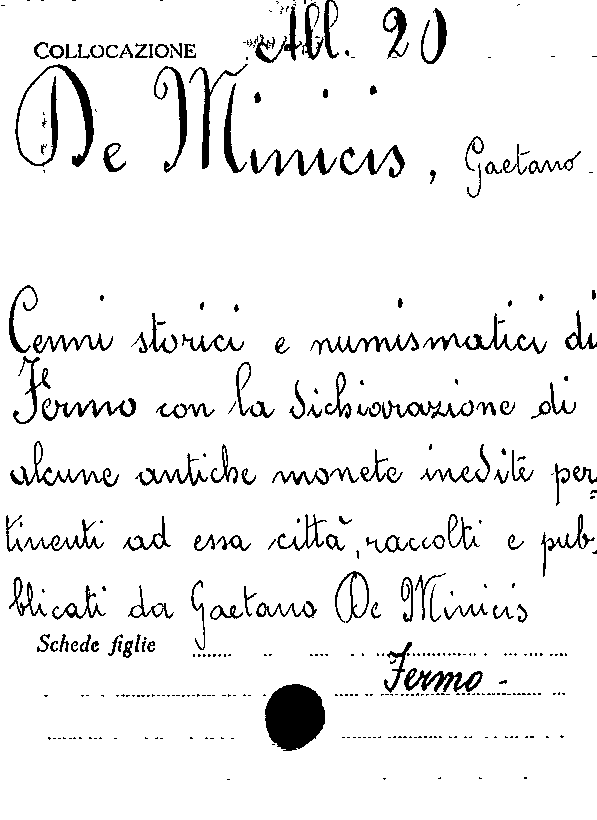 COLLOCAZIONE All. 20
De Minicis, Gaetano.
Cenni storici e numismatici di
Fermo con la dichiarazione di
alcune antiche monete inedite per=
tinenti ad essa città, raccolti e pub=
blicati da Gaetano De Minicis
Schede figlie
Fermo -